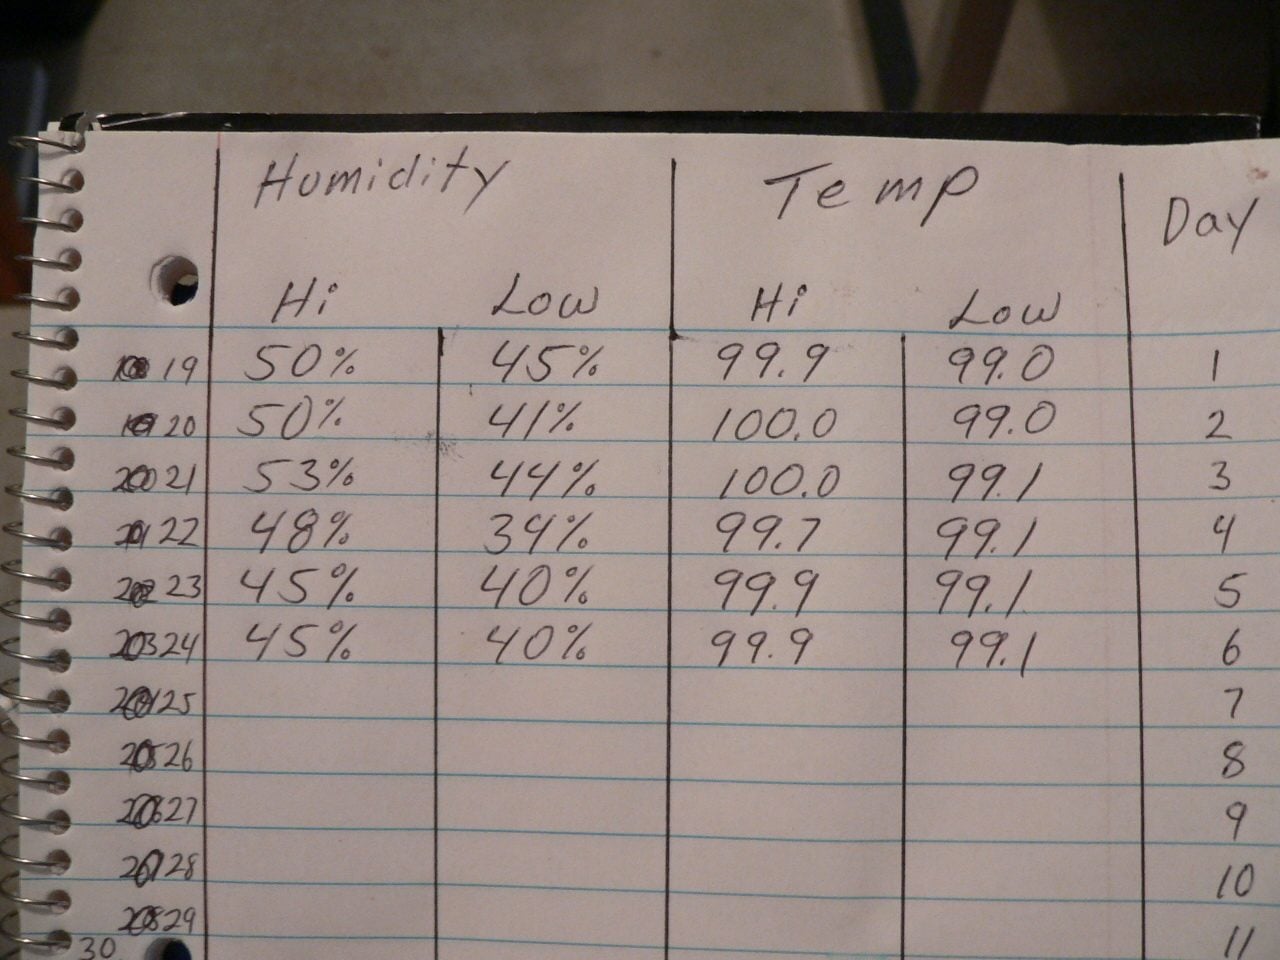 Humidity Temp Day
Hi Low Hi Low
19 50% 45% 99.9 99.0 1
20 50% 41% 100.0 99.0 2
21 53% 44% 100.0 99.1 3
22 48% 39% 99.7 99.1 4
23 45% 40% 99.9 99.1 5
24 45% 40% 99.9 99.1 6
25 7
26 8
27 9
28 10
29 11
30